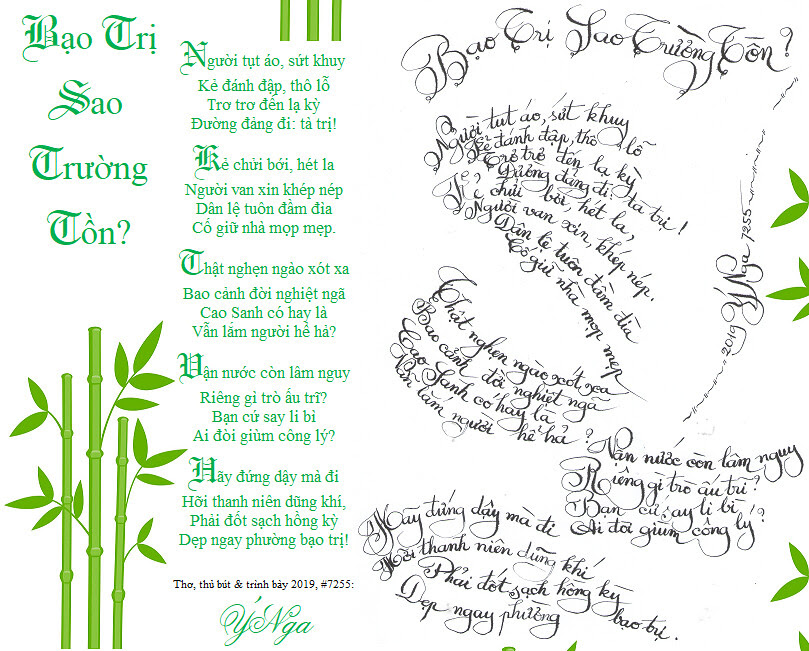 Bạo Trị
Sao
Trường
Tồn?
Người tụt áo, sứt khuy
Kẻ đánh đập, thô lỗ
Trơ trơ đến lạ kỳ
Đường đảng đi: tả trị!
Kẻ chửi bới, hét la
Người van xin khép nép
Dân lệ tuôn đầm đìa
Cố giữ nhà mọp mẹp.
Thật nghẹn ngào xót xa
Bao cảnh đời nghiệt ngã
Cao Sanh có hay là
Vẫn lắm người hề hả?
Vận nước còn lâm nguy
Riêng gì trò ấu trĩ?
Bạn cứ say li bì
Ai đòi giùm công lý?
Hãy đứng dậy mà đi
Hỡi thanh niên dũng khí,
Phải đốt sạch hồng kỳ
Dẹp ngay phường bạo trị!
Thơ, thủ bút & trình bày 2019, #7255:
ÝNga
Bạo Trị Sao Trường Tồn?
Người tụt áo, sứt khuy
Kẻ đánh đập, thô lỗ
Trơ trơ đến lạ kỳ
Đường đảng đi: tả trị!
Kẻ chửi bới, hét la,
Người van xin, khép nép.
Dân lệ tuôn đầm đìa
Cố giữ nhà mọp mẹp
Thật nghẹn ngào xót xa
Bao cảnh đời nghiệt ngã
Cao Sanh có hay là
Vẫn lắm người hề hả?
Vận nước còn lâm nguy
Riêng gì trò ấu trĩ?
Bạn cứ say li bì
Ai đòi giùm công lý?
Hãy đứng dậy mà đi
Hỡi thanh niên dũng khí
Phải đốt sạch hồng kỳ
Dẹp ngay phường bạo trị.
2019 ÝNga 7255